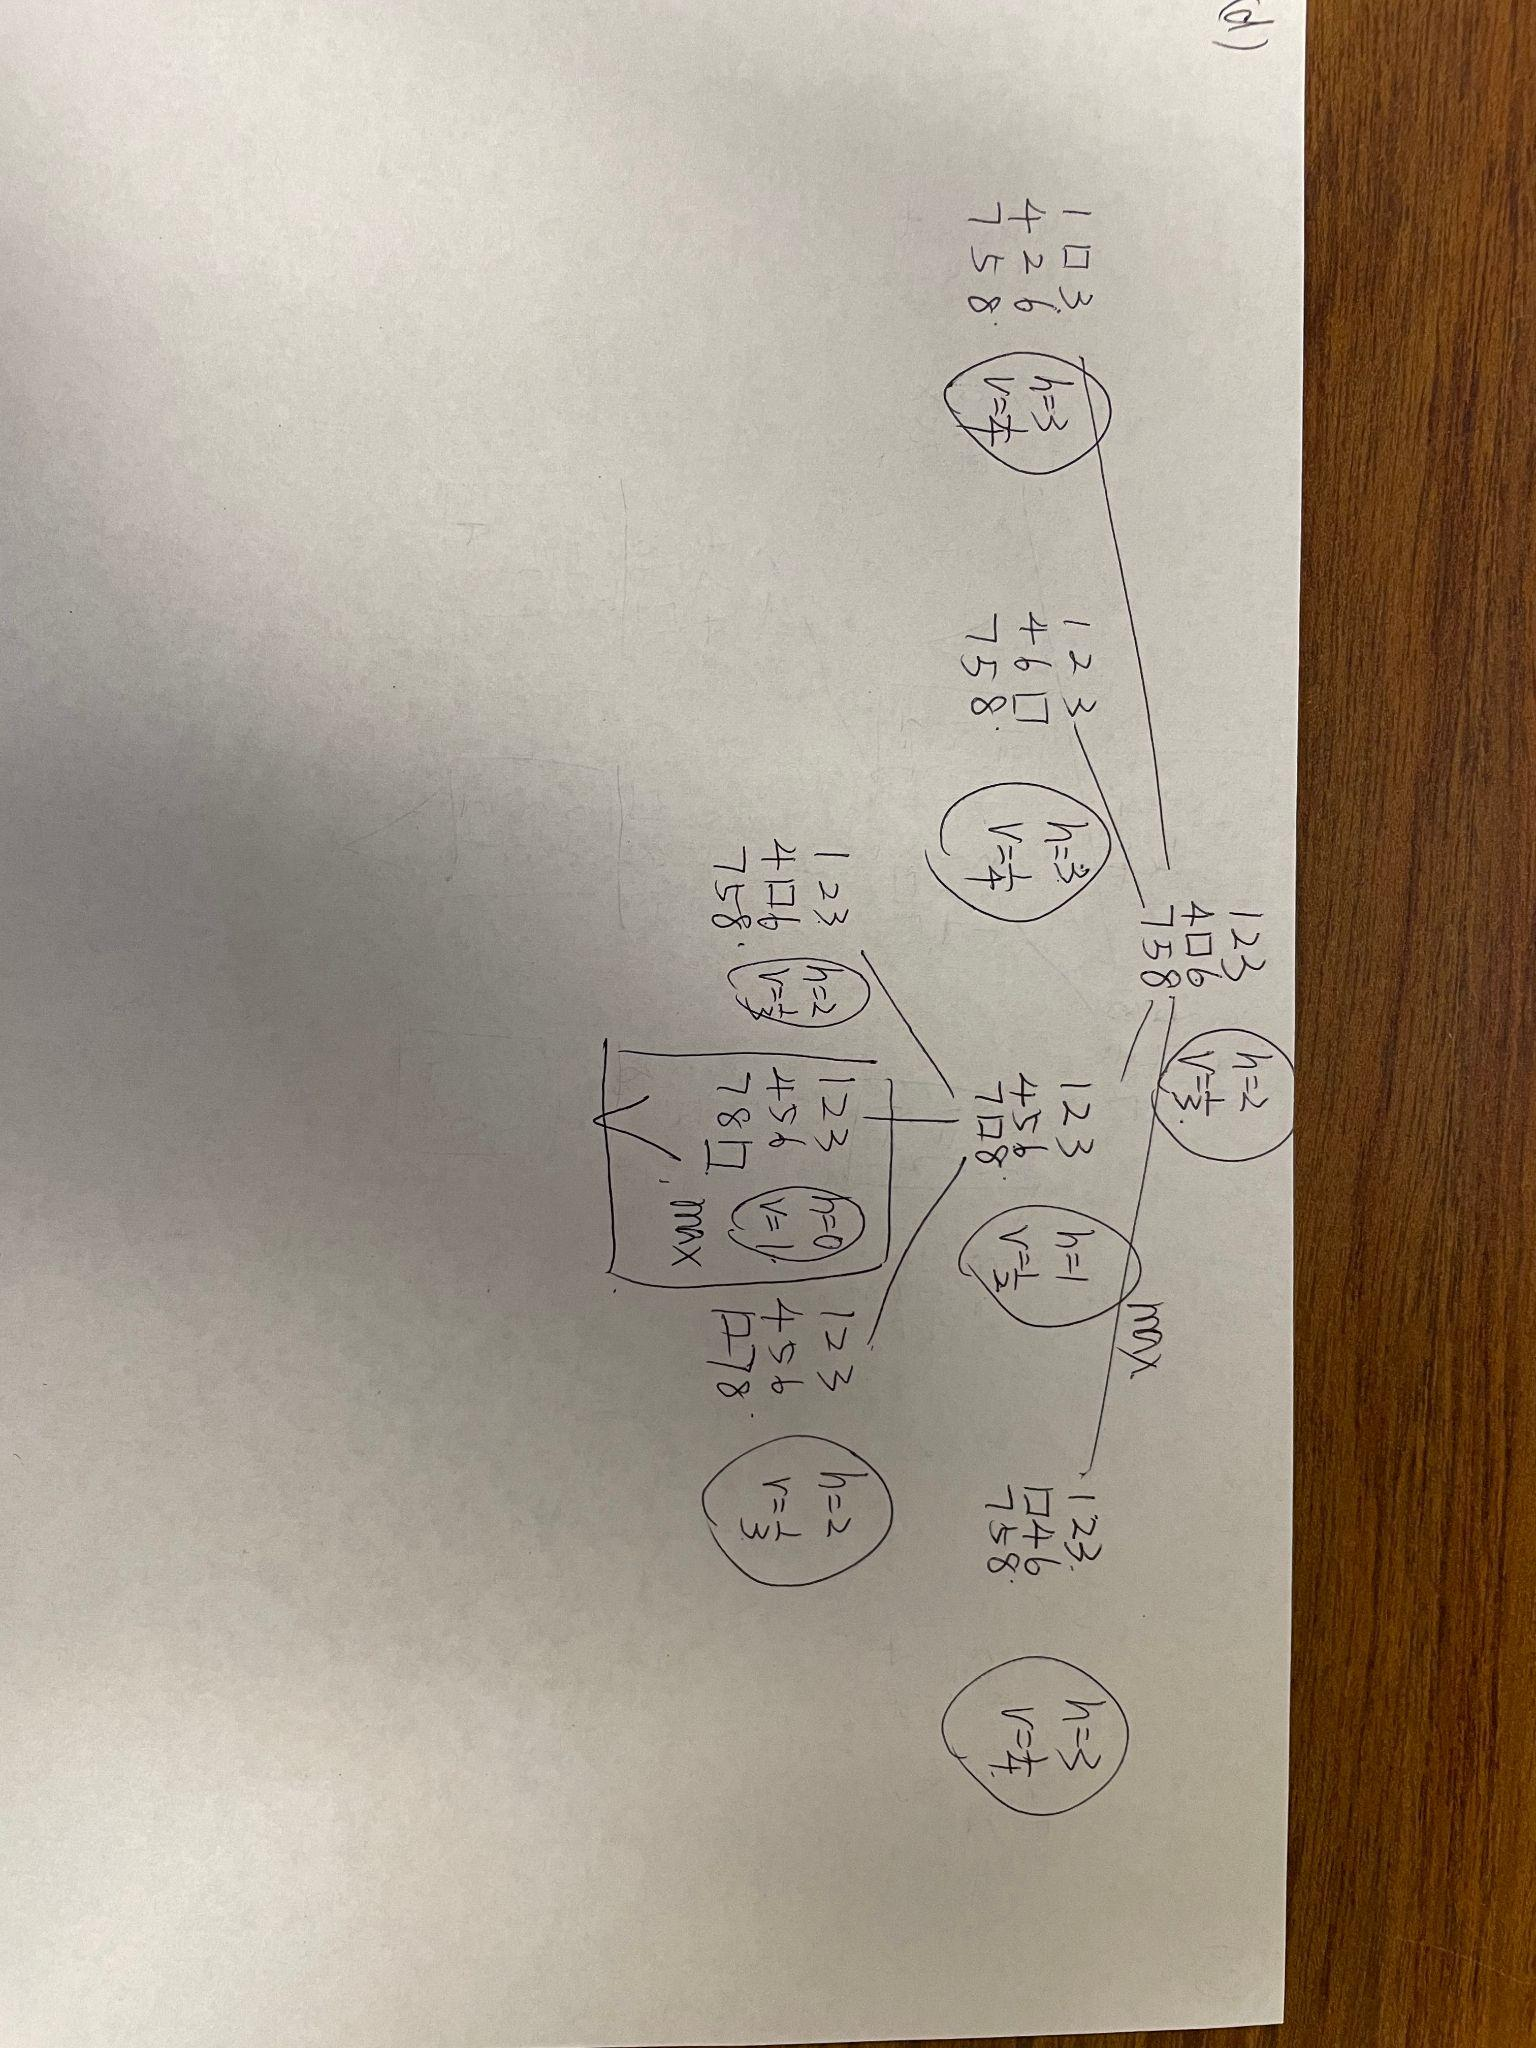 d)
1 2 3
4 □ 6
7 5 8
h=2
v=1/3.
max
1 □ 3
4 2 6.
7 5 8.
h=3
v=1/4
1 2 3
4 6 □
7 5 8.
h=3.
v=1/4
1 2 3
4 5 6
7 □ 8.
h=1
v=1/2
1 2 3.
□ 4 6
7 5 8.
h=3
v=1/4
1 2 3.
4 □ 6
7 5 8.
h=2
v=1/3
1 2 3
4 5 6
7 8 □
h=0
v=1.
max
1 2 3
4 5 6
□ 7 8.
h=2
v=1/3